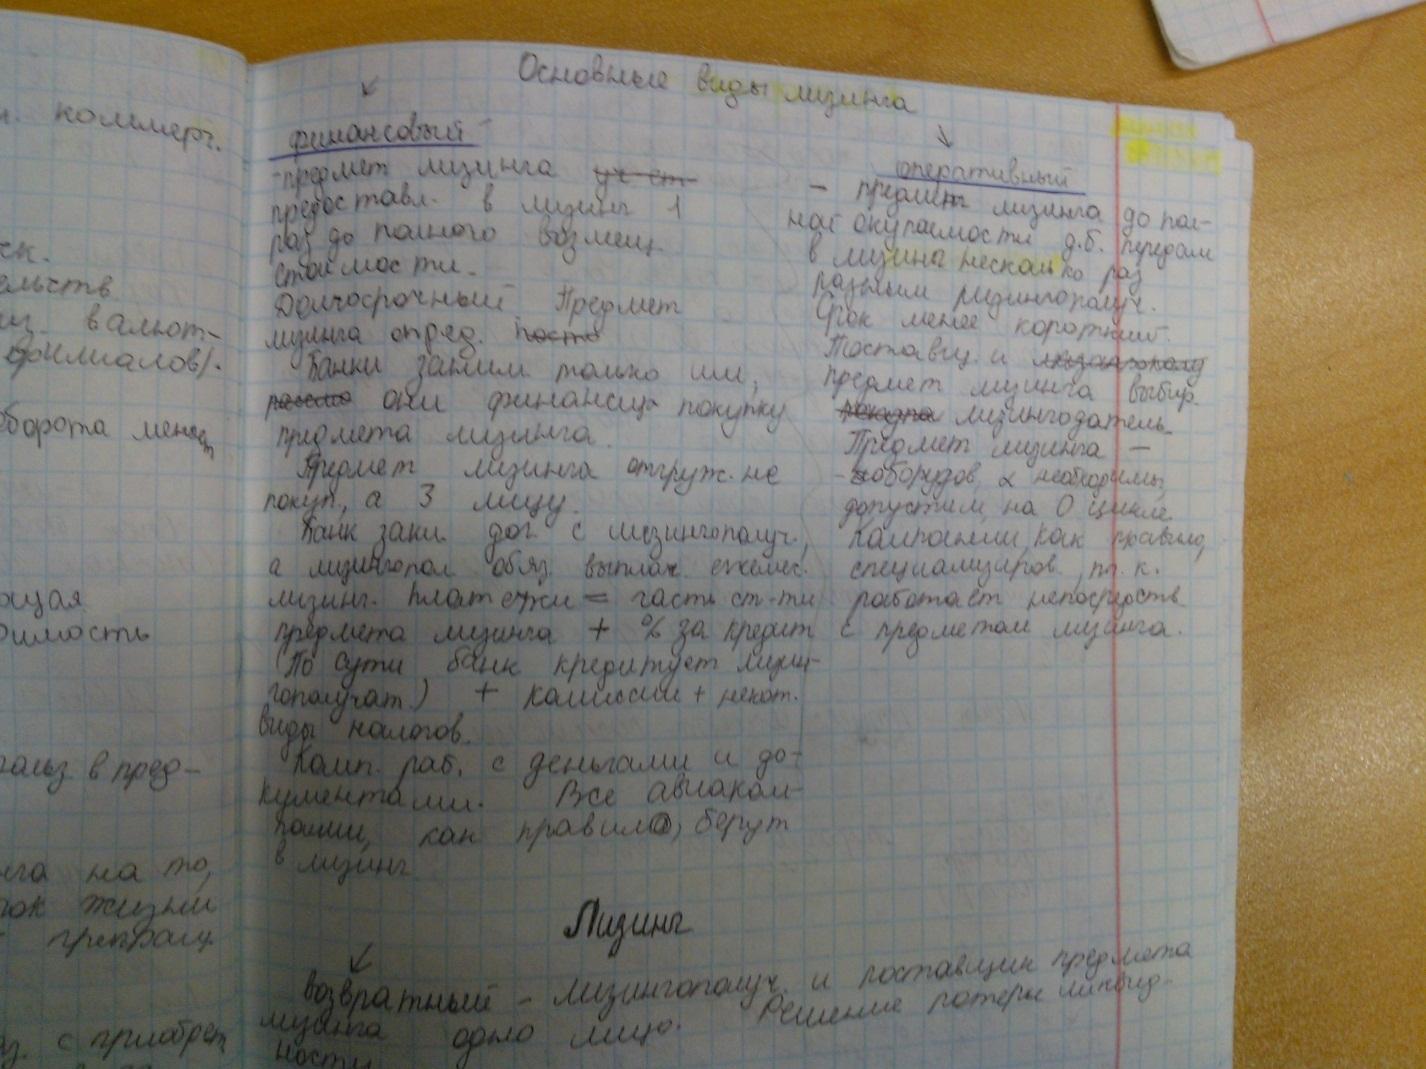 и. коммерч.
ск.
ельств
из. валют-
филиалов).
оборота менед
ощая
оимость
польз в пред-
нга на то,
рок жизни
прекращ
с приобрет
Основные виды лизинга
финансовый
-предмет лизинга
предоставл. в лизинг 1
раз до полного возмещ.
стоимости.
Долгосрочный Предмет
лизинга опред.
Банки заним только им,
они финансир покупку
предмета лизинга.
Предмет лизинга отгруж. не
покуп., а 3 лицу.
Банк закл. дог. с лизингополуч.,
а лизингопол. обяз. выплач. ежемес.
лизинг. платежи = часть ст-ти
предмета лизинга + % за кредит
(По сути банк кредитует лизин-
гополучат.) + комиссии + некот.
виды налогов.
Комп. раб. с деньгами и до-
кументами. Все авиаком-
пании, как правило, берут
в лизинг
оперативный
- предмет лизинга до пол-
ной окупаемости д.б. передан
в лизинг несколько раз
разным лизингополуч.
Срок менее короткий.
Поставщ. и
предмет лизинга выбир.
лизингодатель.
Предмет лизинга -
- оборудов. необходимы,
допустим, на 0 цикле
Компании, как правило,
специализиров., т. к.
работает непосредств.
с предметом лизинга.
Лизинг
возвратный - лизингополуч. и поставщик предмета
лизинга одно лицо. Решение потери ликвид-
ности